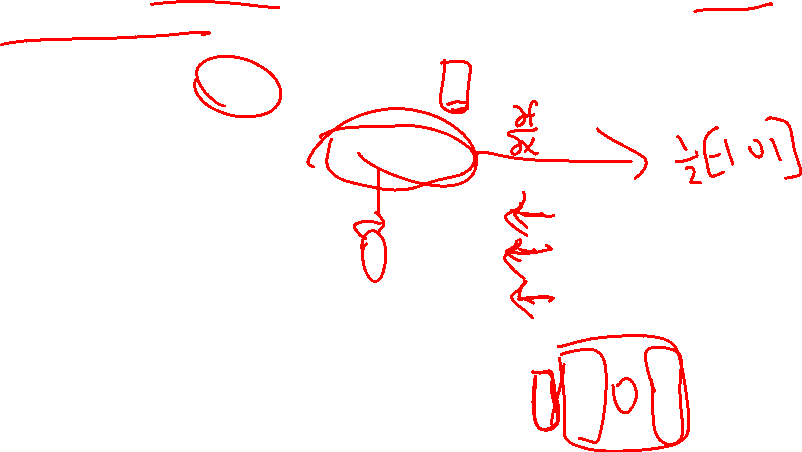 ∂f/∂x
1/2[-1 0 1]